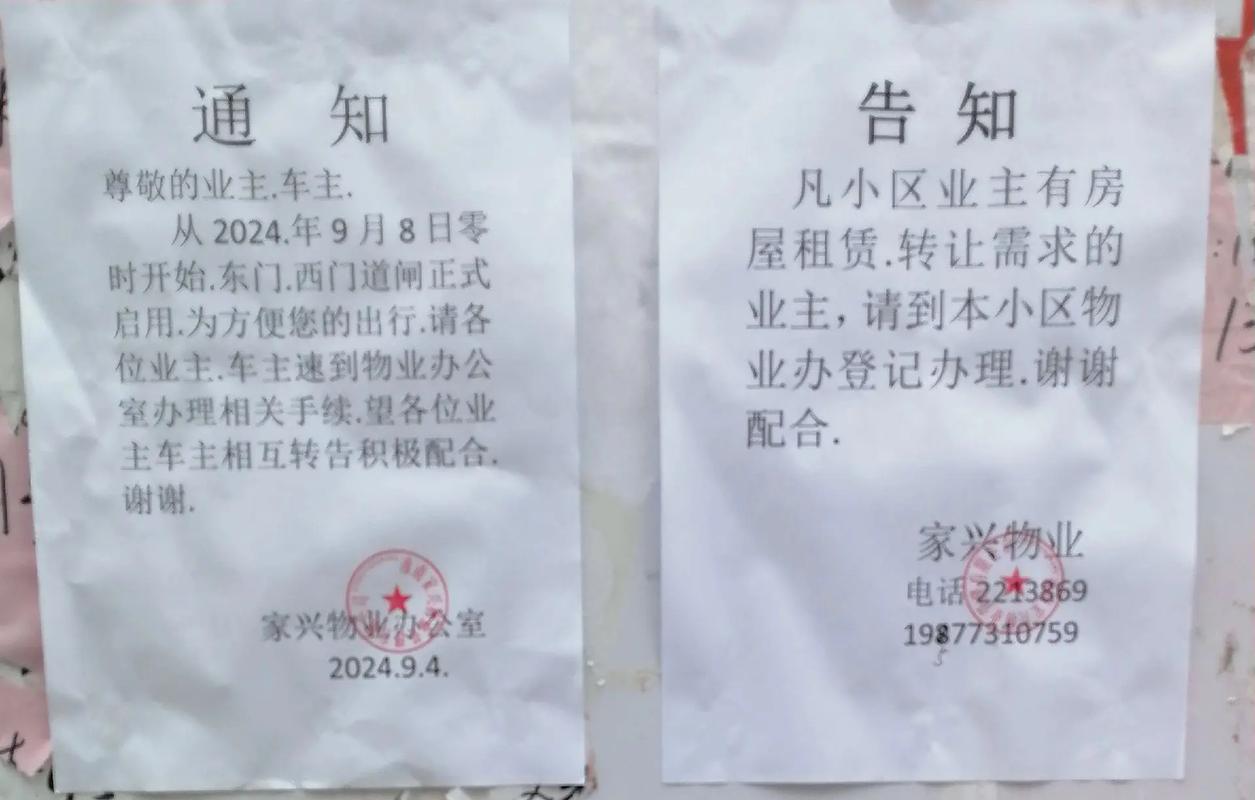 通 知
尊敬的业主.车主.
从 2024.年 9 月 8 日零
时开始.东门.西门道闸正式
启用.为方便您的出行.请各
位业主.车主速到物业办公
室办理相关手续.望各位业
主车主相互转告积极配合.
谢谢.
家兴物业办公室
2024.9.4.
告 知
凡小区业主有房
屋租赁.转让需求的
业主，请到本小区物
业办登记办理.谢谢
配合.
家兴物业
电话 2213869
19877310759
5